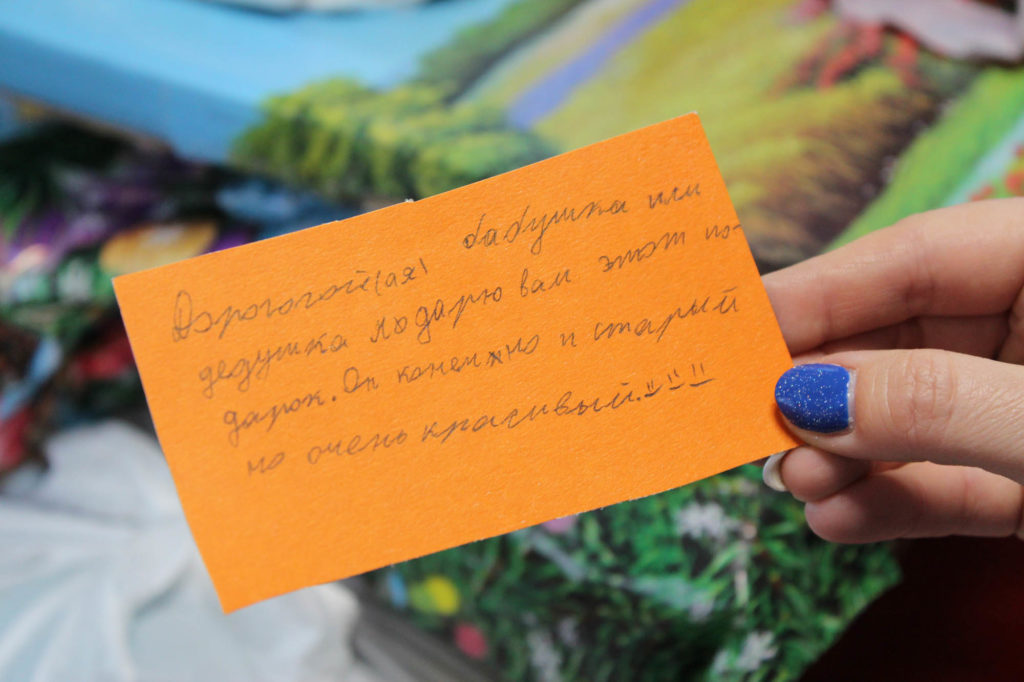 Дорогогой(ая) бабушка или
дедушка подарю вам этот по-
дарок. Он конечжно и старый
но очень красивый.